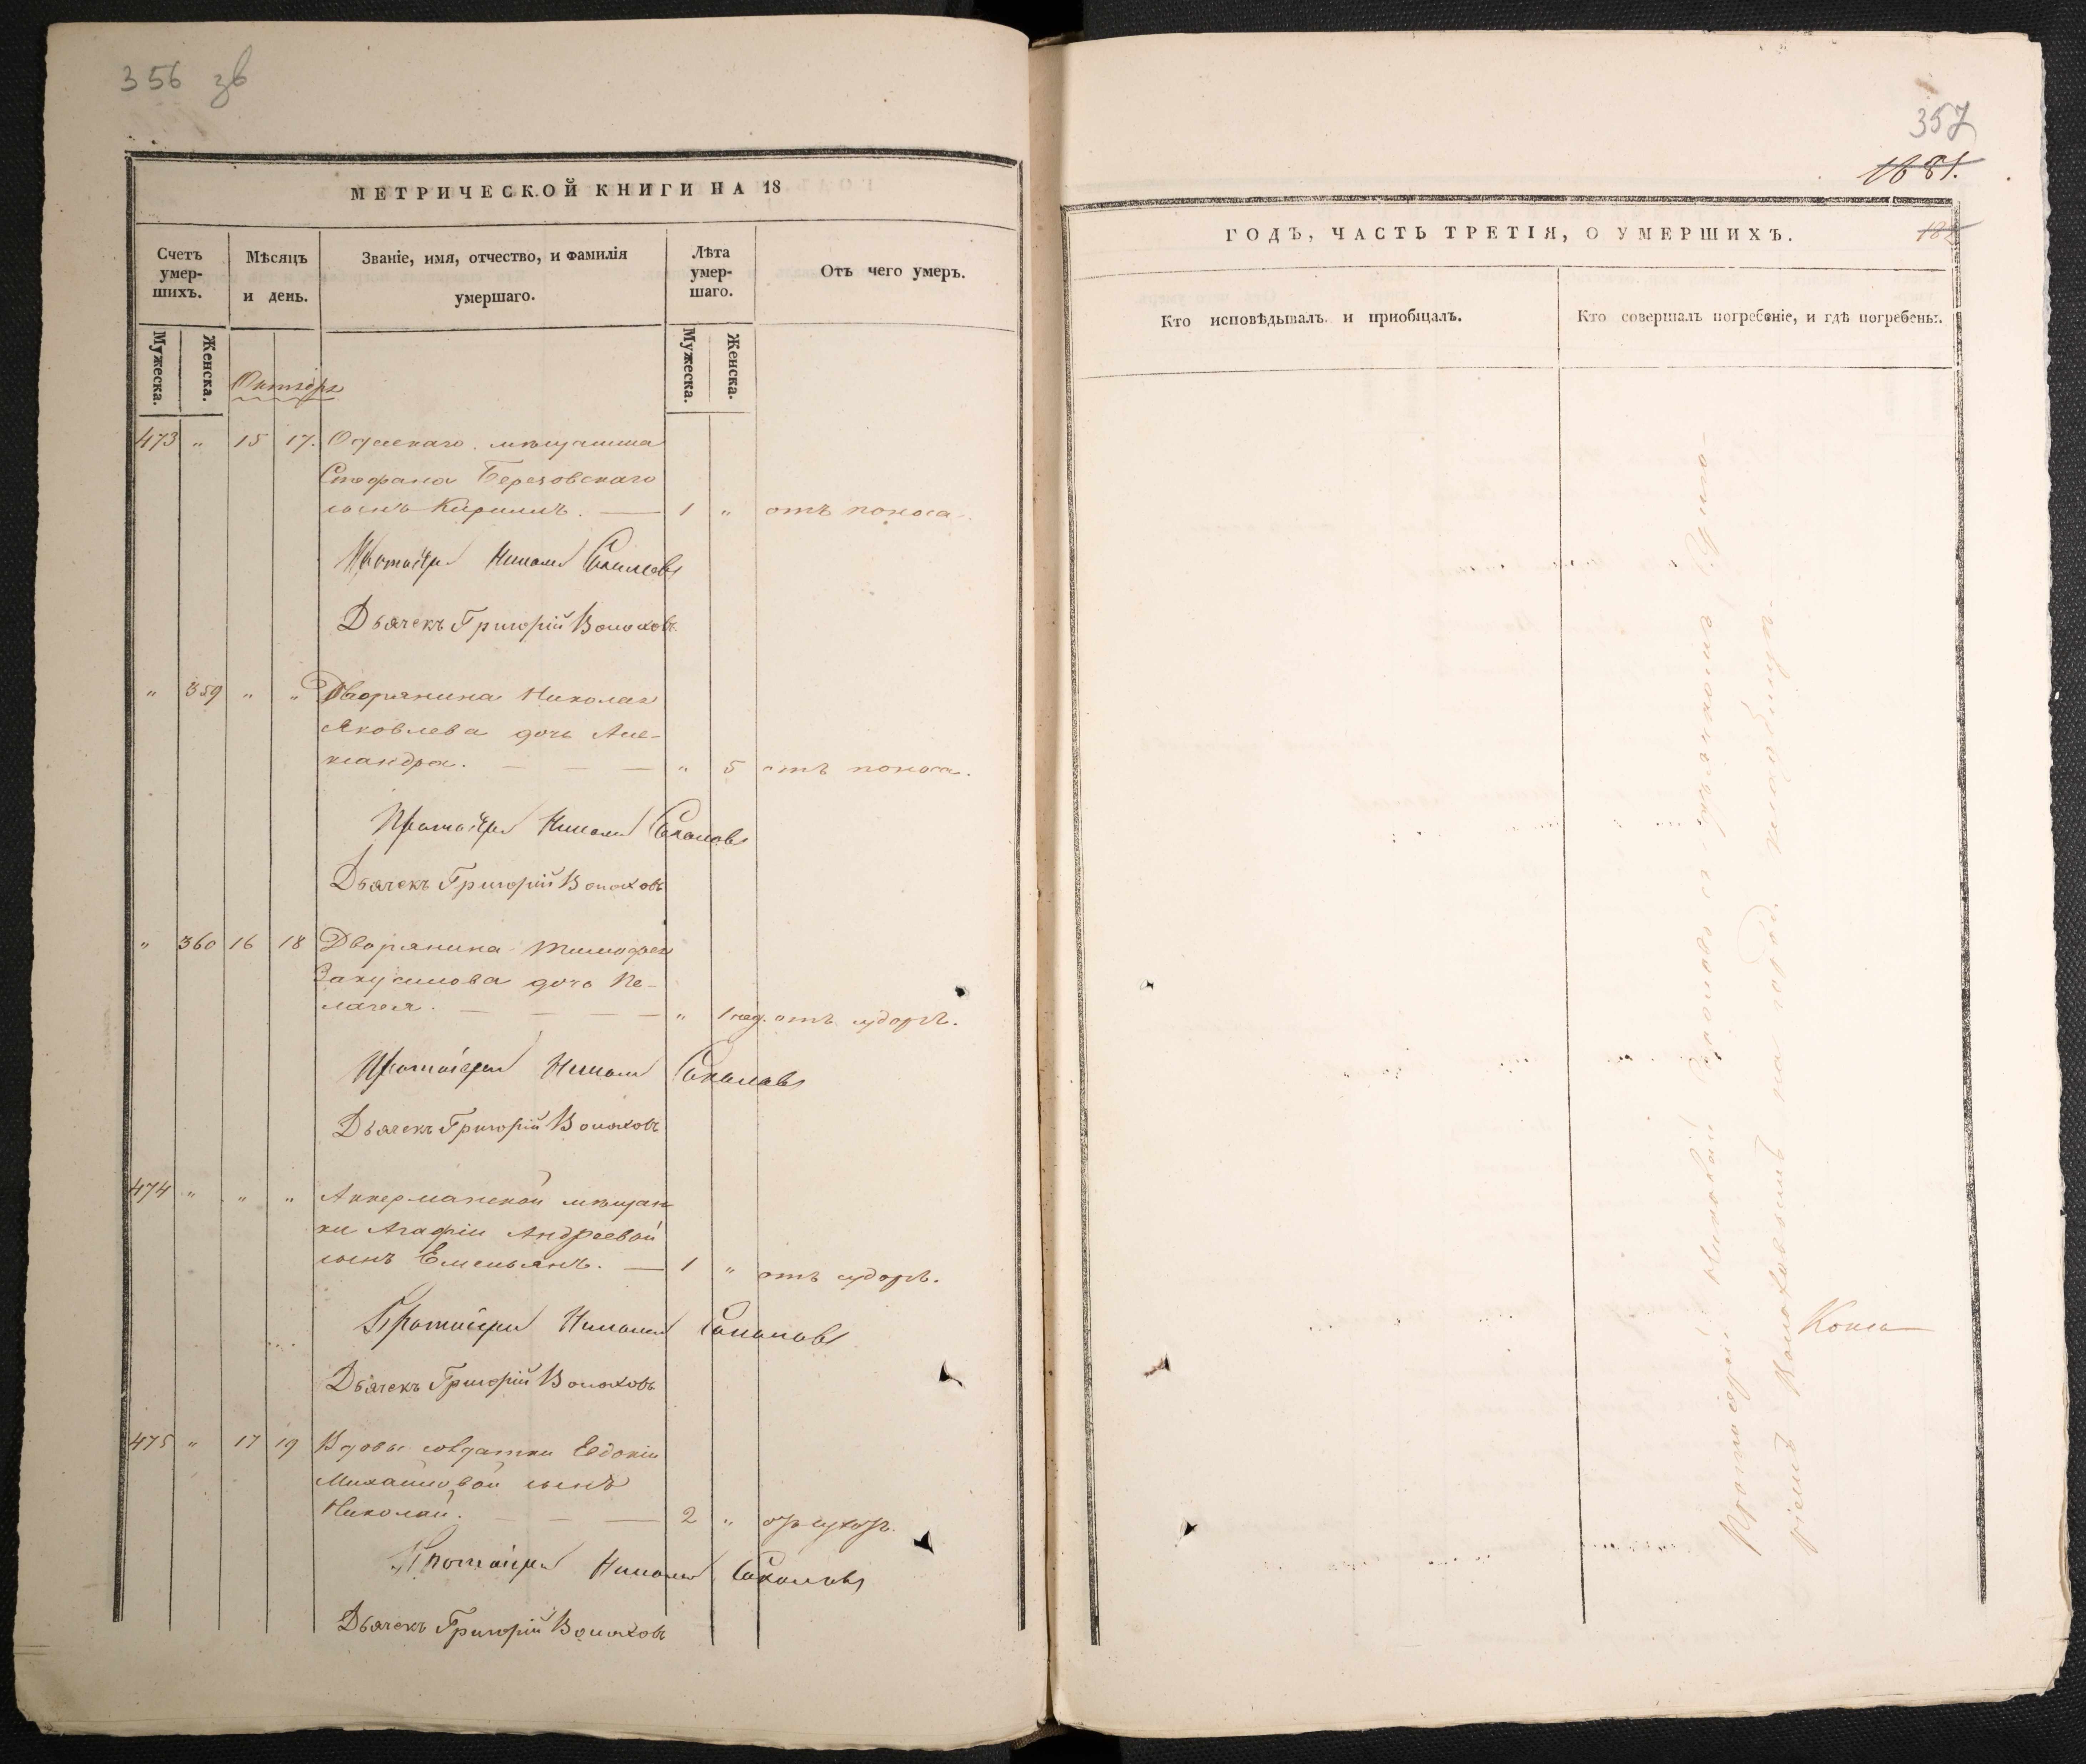 356 зв
МЕТРИЧЕСКОЙ КНИГИ НА 18
Счетъ умер-шихъ.
Мѣсяцъ и день.
Званіе, имя, отчество, и фамилія умершаго.
Лѣта умер-шаго.
Отъ чего умеръ.
Мужеска.
Женска.
Мужеска.
Женска.
Октябрь
473 " 15 17. Одескаго мѣщанина
Стефана Березовскаго
сынъ Кирилъ. — 1 " отъ поноса.
Протоіерей Николай Соколовъ
Дьячекъ Григорій Волоховъ
" 359 " " Дворянина Николая
Яковлева дочь Але-
ксандра. — — — " 5 отъ поноса.
Протоіерей Николай Соколовъ
Дьячекъ Григорій Волоховъ
" 360 16 18 Дворянина Тимофея
дочь Пе-
лагея. — — — — " 1 нед. отъ судорг.
Протоіерей Николай Соколовъ
Дьячекъ Григорій Волоховъ
474 " " " Аккерманской мѣщан
ки Агафіи Андреевой
сынъ Емельянъ. — 1 " отъ судорг.
Протоіерей Николай Соколовъ
Дьячекъ Григорій Волоховъ
475 " 17 19 Вдовы солдатки Евдокіи
Михайловой сынъ
Николай. — — — 2 "
Протоіерей Николай Соколовъ
Дьячекъ Григорій Волоховъ
357
1881.
ГОДЪ, ЧАСТЬ ТРЕТІЯ, О УМЕРШИХЪ.
Кто исповѣдывалъ и пріобщалъ.
Кто совершалъ погребеніе, и гдѣ погребены.
Протоіерей Николай Соколовъ съ дьячкомъ Григо-
ріемъ Волоховымъ на город. кладбищѣ.